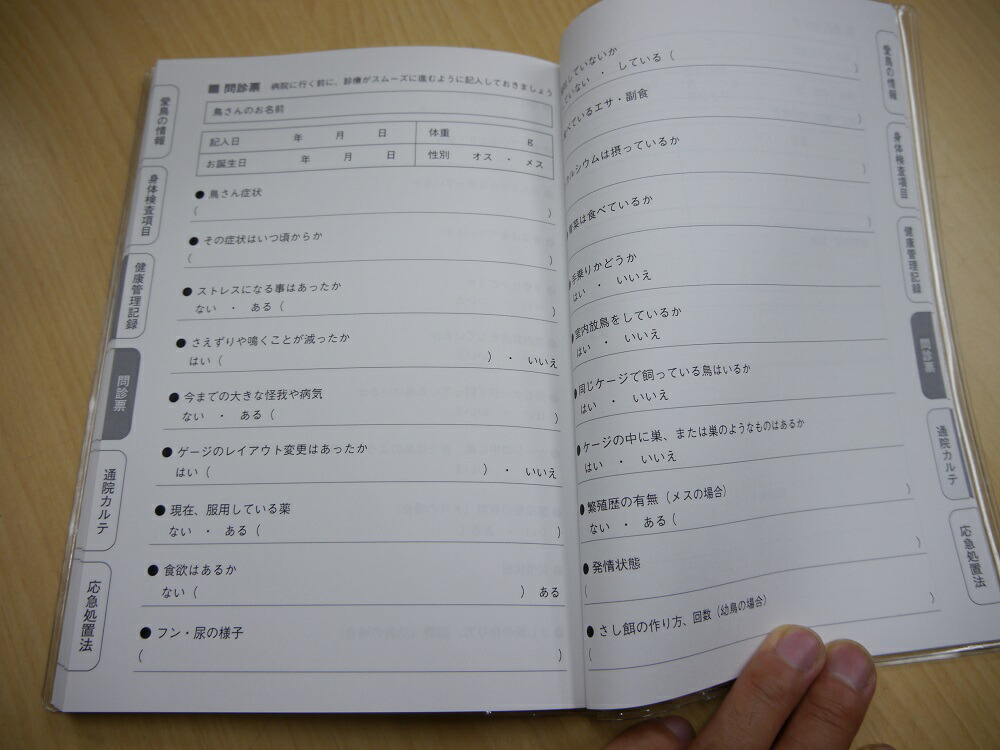 愛鳥の情報
身体検査項目
健康管理記録
問診票
通院カルテ
応急処置法
■ 問診票 病院に行く前に、診療がスムーズに進むように記入しておきましょう
鳥さんのお名前
記入日 年 月 日 体重 g
お誕生日 年 月 日 性別 オス ・ メス
● 鳥さん症状
( )
● その症状はいつ頃からか
( )
● ストレスになる事はあったか
ない ・ ある ( )
● さえずりや鳴くことが減ったか
はい ( ) ・ いいえ
● 今までの大きな怪我や病気
ない ・ ある ( )
● ゲージのレイアウト変更はあったか
はい ( ) ・ いいえ
● 現在、服用している薬
ない ・ ある ( )
● 食欲はあるか
ない ( ) ある
● フン・尿の様子
( )
していないか
いない ・ している ( )
べているエサ・副食
)
ルシウムは摂っているか
)
青菜は食べているか
)
● 手乗りかどうか
はい ・ いいえ
● 室内放鳥をしているか
はい ・ いいえ
● 同じケージで飼っている鳥はいるか
はい ・ いいえ
● ケージの中に巣、または巣のようなものはあるか
はい ・ いいえ
● 繁殖歴の有無 (メスの場合)
ない ・ ある ( )
● 発情状態
( )
● さし餌の作り方、回数 (幼鳥の場合)
( )
愛鳥の情報
身体検査項目
健康管理記録
問診票
通院カルテ
応急処置法